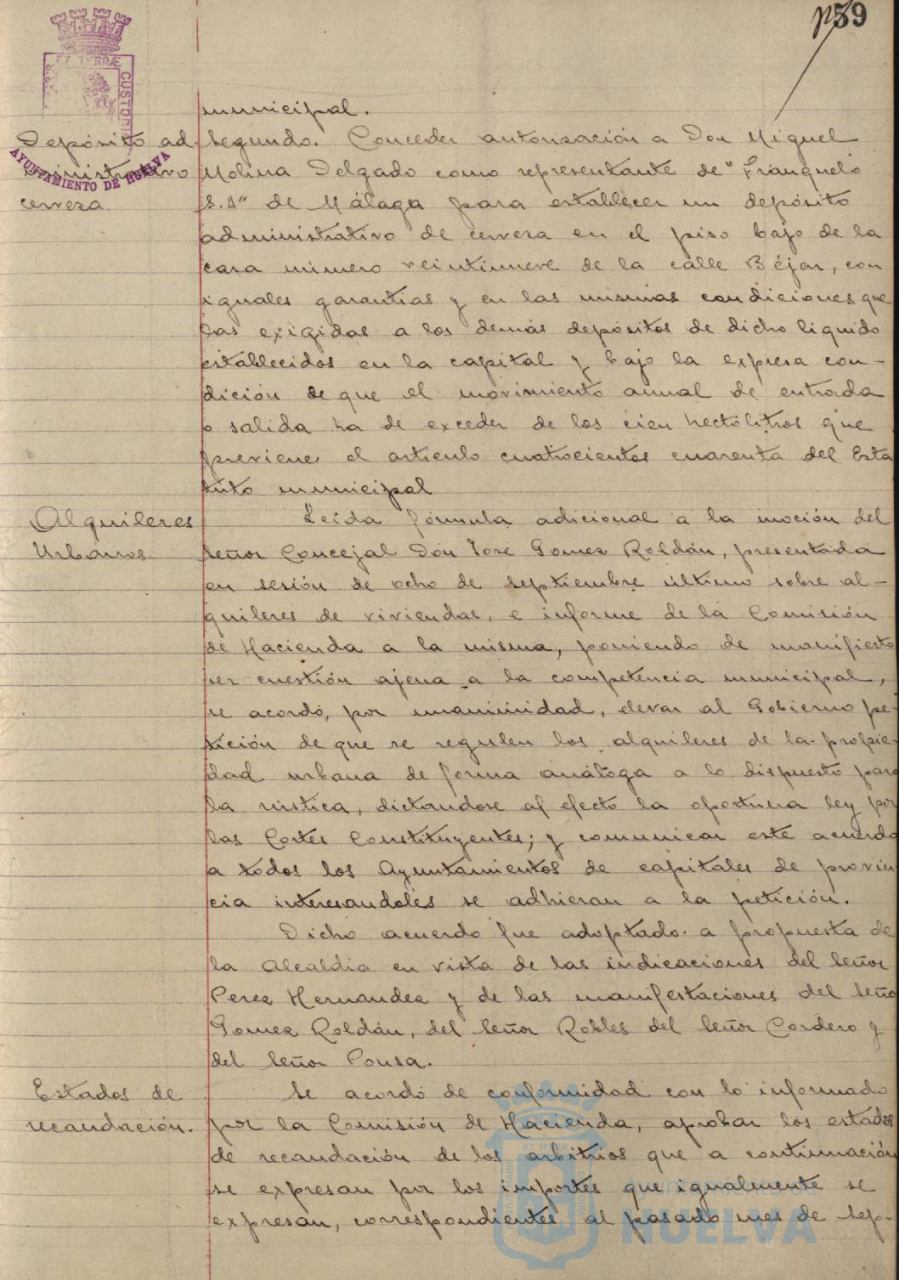 p 39
PORTUS MARIS ET TERRÆ CUSTODIA
AYUNTAMIENTO DE HUELVA
municipal.
Depósito ad
ministrativo
cerveza
Segundo. Conceder autorización a Don Miguel
Molina Delgado como representante de "Franquelo
S.A" de Málaga para establecer un depósito
administrativo de cerveza en el piso bajo de la
casa número veintinueve de la calle Béjar, con
iguales garantías y en las mismas condiciones que
las exigidas a los demás depósitos de dicho líquido
establecidos en la capital y bajo la expresa con-
dición de que el movimiento anual de entrada
o salida ha de exceder de los cien hectólitros que
previene el artículo cuatrocientos cuarenta del Esta
tuto municipal
Alquileres
Urbanos.
Leída fórmula adicional a la moción del
Señor Concejal Don José Gomez Roldán, presentada
en sesión de ocho de septiembre último sobre al-
quileres de viviendas, e informe de la Comisión
de Hacienda a la misma, poniendo de manifiesto
ser cuestión ajena a la competencia municipal,
se acordó, por unanimidad, elevar al Gobierno pe-
tición de que se regulen los alquileres de la propie-
dad urbana de forma análoga a lo dispuesto para
la rústica, dictandose al efecto la oportuna ley por
las Cortes Constituyentes; y comunicar este acuerdo
a todos los Ayuntamientos de capitales de provin
cia interesandoles se adhieran a la petición.
Dicho acuerdo fue adoptado a propuesta de
la Alcaldia en vista de las indicaciones del Señor
Perez Hernandez y de las manifestaciones del Seño
Gomez Roldán, del Señor Robles del Señor Cordero y
del Señor Ponsa.
Estados de
recaudación.
Se acordó de conformidad con lo informado
por la Comisión de Hacienda, aprobar los estados
de recaudación de los arbitrios que a continuación
se expresan por los importes que igualmente se
expresan, correspondientes al pasado mes de sep-
HUELVA